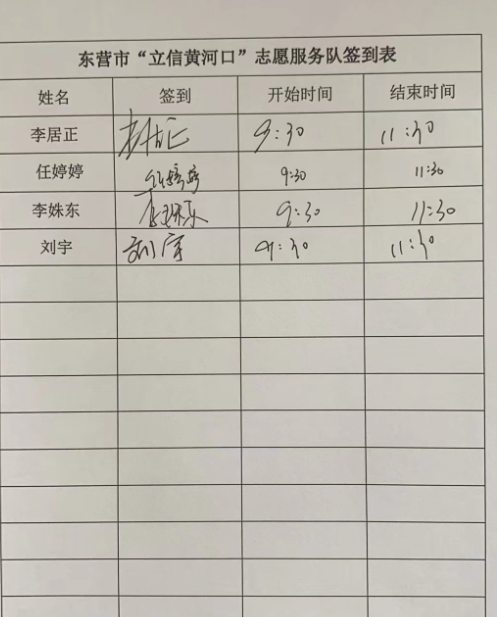 东营市“立信黄河口”志愿服务队签到表
姓名 签到 开始时间 结束时间
李居正 李居正 9:30 11:30
任婷婷 任婷婷 9:30 11:30
李姝东 李姝东 9:30 11:30
刘宇 刘宇 9:30 11:30